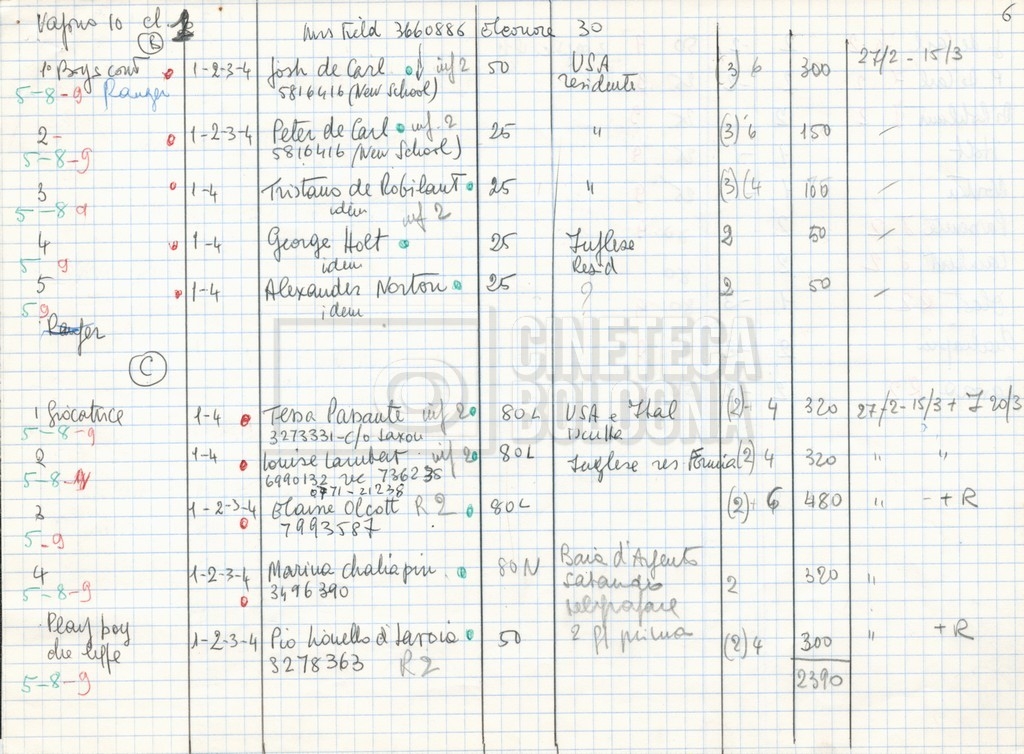 6
Vapno 10 cl. 1
Mrs Field 3660886 Eleonora 30
B
1º Boys cont 1-2-3-4 Josh de Carl inf 2 50 USA (3) 6 300 27/2 - 15/3
5-8-9 Ranger 5816416 (New School) residente
2 - 1-2-3-4 Peter de Carl inf. 2 25 " (3) 6 150 -
5-8-9 5816416 (New School)
3 1-4 Tristano de Robilant 25 " (3) (4 100 -
5-8 9 idem inf 2
4 1-4 George Holt 25 Inglese 2 50 -
5 9 idem Resid
5 1-4 Alexander Norton 25 ? 2 50 -
5 9 idem
Ranger
CINETECA
BOLOGNA
C
1 Giocatrice 1-4 Tessa Papante inf 2 80L USA e Ital (2)- 4 320 27/2-15/3 + 20/3
5-8-9 3273331-c/o Saxon
2 1-4 Louise Lambert inf 2 80L Inglese res (2) 4 320 " "
5-8-9 6990132 736235
0771-21238
3 1-2-3-4 Elaine Olcott R2 80L (2)- 6 480 " - + R
5-9 7993587
4 1-2-3-4 Marina Chaliapin 80N Baia d'Argento 2 320 "
5-8-9 3496390
Play boy 1-2-3-4 Pio Lionello d'Savoia 50 2 pf prima (2) 4 300 " + R
3278363 R2
5-8-9 2390